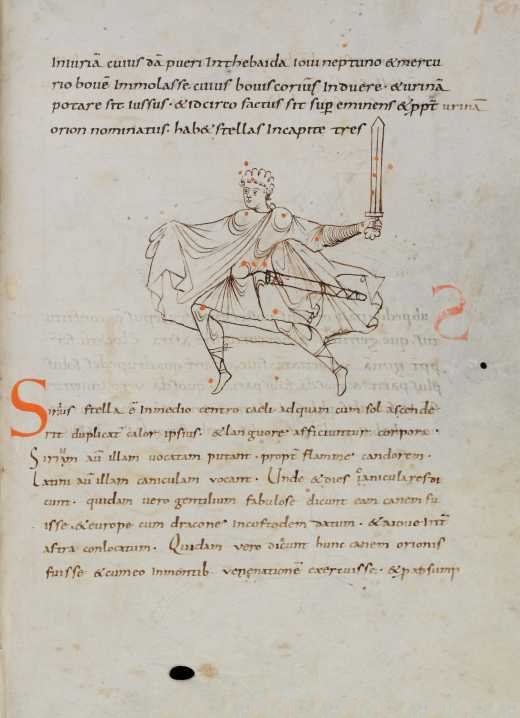 Iniuriā cuius dā pueri Inthebaida ioui neptuno & mercu
rio bouē Immolasse cuius bouis coriū Induere · & urinā
potare sit iussus · & idcirco factus sit sup eminens & ppt urinā
orion nominatus · hab& stellas Incapite tres
Sirius stella ē Inmedio centro caeli ad quam cum sol ascende
rit duplicat calor ipsius · & languore afficiuntur corpora ·
Siriam au illam vocatam putant · propt flamme candorem ·
Latini au illam caniculam vocant · Unde & dies caniculares di
cunt · quidam vero gentilium fabulose dicunt eam canem fu
isse · & europe cum dracone Incustodem datum · & aioue Int
astra conlocatum · Quidam vero dicunt hunc canem orionis
fuisse & cum eo Inmontib venationē exercuisse ·